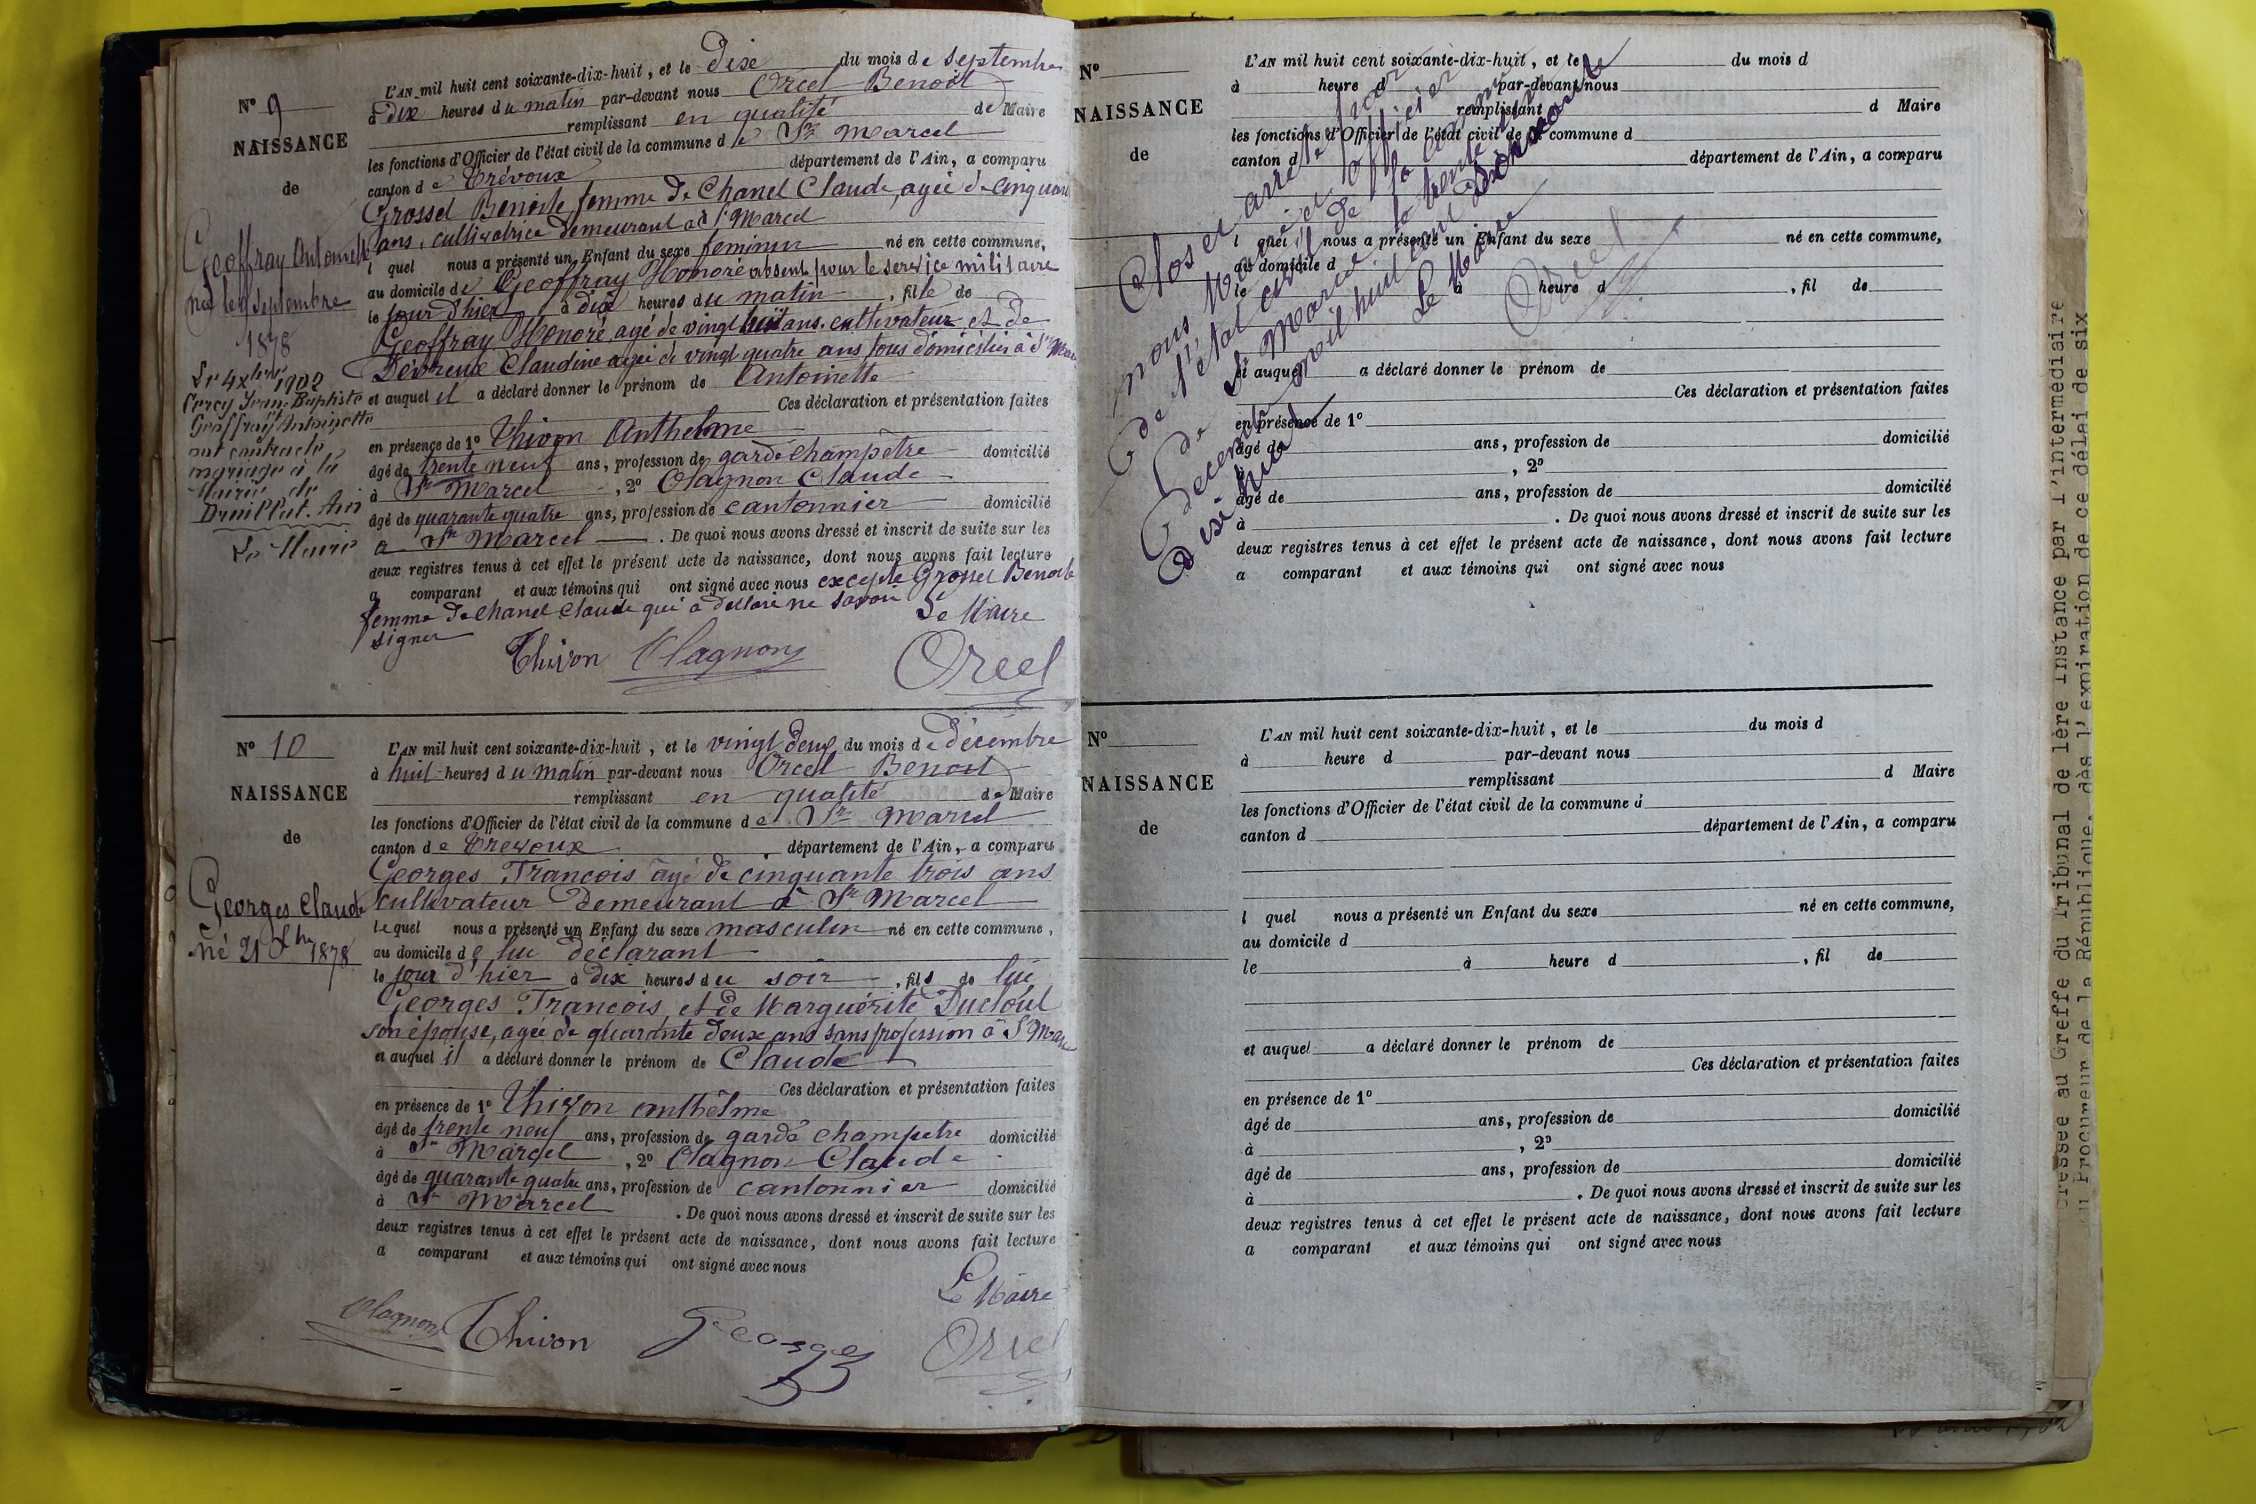 L'AN mil huit cent soixante-dix-huit, et le Dix du mois de septembre
N° 9
à Dix heures du matin par-devant nous Orcel Benoît
remplissant en qualité de Maire
NAISSANCE
les fonctions d'Officier de l'état civil de la commune de St Marcel
de
canton de Trévoux département de l'Ain, a comparu
Grossel Benoite femme de Chanel Claude, agée de cinquante
ans, cultivatrice demeurant à St Marcel
Geoffray Antoinette
l quel nous a présenté un Enfant du sexe féminin né en cette commune,
au domicile de Geoffray Honoré absent pour le service militaire
née le 9 septembre
1878
le jour d'hier à dix heures du matin, fille de
Geoffray Honoré agé de vingt huit ans, cultivateur et de
Claudine agée de vingt quatre ans tous domiciliés à St Marcel
et auquel il a déclaré donner le prénom de Antoinette
Ces déclaration et présentation faites
Le 4 xbre 1902
Jean-Baptiste
Geoffray Antoinette
ont contracté
mariage à la
Mairie de
Druillat. Ain
Le Maire
en présence de 1° Thivon Anthelme
âgé de trente neuf ans, profession de garde champêtre domicilié
à St Marcel, 2° Clagnon Claude
âgé de quarante quatre ans, profession de cantonnier domicilié
à St Marcel. De quoi nous avons dressé et inscrit de suite sur les
deux registres tenus à cet effet le présent acte de naissance, dont nous avons fait lecture
a comparant et aux témoins qui ont signé avec nous excepte Grossel Benoite
femme de Chanel Claude qui a déclaré ne savoir
signer
Le Maire
Thivon Clagnon Orcel
N° 10
L'AN mil huit cent soixante-dix-huit, et le vingt deux du mois de décembre
à huit heures du matin par-devant nous Orcel Benoit
NAISSANCE
remplissant en qualité de Maire
les fonctions d'Officier de l'état civil de la commune de St Marcel
de
canton de Trevoux département de l'Ain, a comparu
Georges François âgé de cinquante trois ans
Georges Claude
né 21 xbre 1878
cultivateur demeurant à St Marcel
lequel nous a présenté un Enfant du sexe masculin né en cette commune,
au domicile de lui déclarant
le jour d'hier à dix heures du soir, fils de lui
Georges François et de Marguérite Ducloul
son épouse, agée de quarante deux ans sans profession à St Marcel
et auquel il a déclaré donner le prénom de Claude
Ces déclaration et présentation faites
en présence de 1° Thivon anthelme
âgé de trente neuf ans, profession de garde champetre domicilié
à St Marcel, 2° Clagnon Claude
âgé de quarante quatre ans, profession de cantonnier domicilié
à St Marcel. De quoi nous avons dressé et inscrit de suite sur les
deux registres tenus à cet effet le présent acte de naissance, dont nous avons fait lecture
a comparant et aux témoins qui ont signé avec nous
Le Maire
Clagnon Thivon Georges Orcel
N°
L'AN mil huit cent soixante-dix-huit, et le du mois d
à heure d par-devant nous
NAISSANCE
remplissant d Maire
les fonctions d'Officier de l'état civil de la commune d
de
canton d département de l'Ain, a comparu
l quel nous a présenté un Enfant du sexe né en cette commune,
au domicile d
le à heure d, fil de
et auquel a déclaré donner le prénom de
Ces déclaration et présentation faites
en présence de 1°
âgé de ans, profession de domicilié
à, 2°
âgé de ans, profession de domicilié
à. De quoi nous avons dressé et inscrit de suite sur les
deux registres tenus à cet effet le présent acte de naissance, dont nous avons fait lecture
a comparant et aux témoins qui ont signé avec nous
Clos et arrêté par
nous Maire et Officier
de l'état civil de la commune
de St Marcel le trente un
Décembre mil huit cent soixante
dix huit
Le Maire
Orcel
N°
L'AN mil huit cent soixante-dix-huit, et le du mois d
à heure d par-devant nous
NAISSANCE
remplissant d Maire
les fonctions d'Officier de l'état civil de la commune d
de
canton d département de l'Ain, a comparu
l quel nous a présenté un Enfant du sexe né en cette commune,
au domicile d
le à heure d, fil de
et auquel a déclaré donner le prénom de
Ces déclaration et présentation faites
en présence de 1°
âgé de ans, profession de domicilié
à, 2°
âgé de ans, profession de domicilié
à. De quoi nous avons dressé et inscrit de suite sur les
deux registres tenus à cet effet le présent acte de naissance, dont nous avons fait lecture
a comparant et aux témoins qui ont signé avec nous
au Greffe du Tribunal de 1ère instance par l'intermédiaire
du Procureur de la République, dès l'expiration de ce délai de six